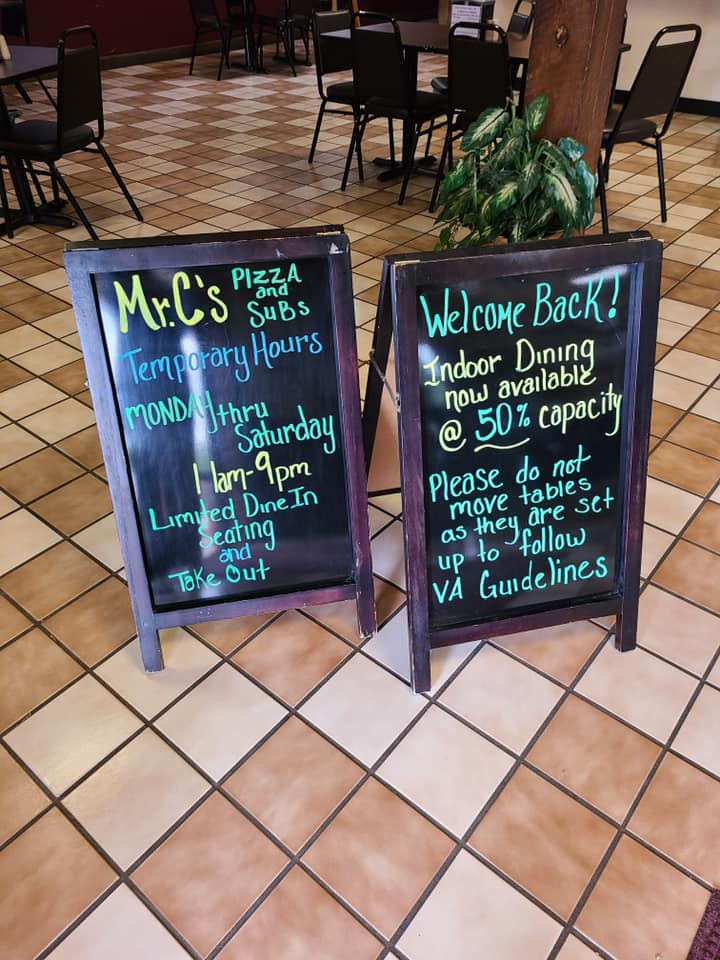 Mr.C's PIZZA and SUBS
Temporary Hours
MONDAY thru
Saturday
11am-9pm
Limited Dine In
Seating
and
Take Out
Welcome Back!
Indoor Dining
now available
@ 50% capacity
Please do not
move tables
as they are set
up to follow
VA Guidelines